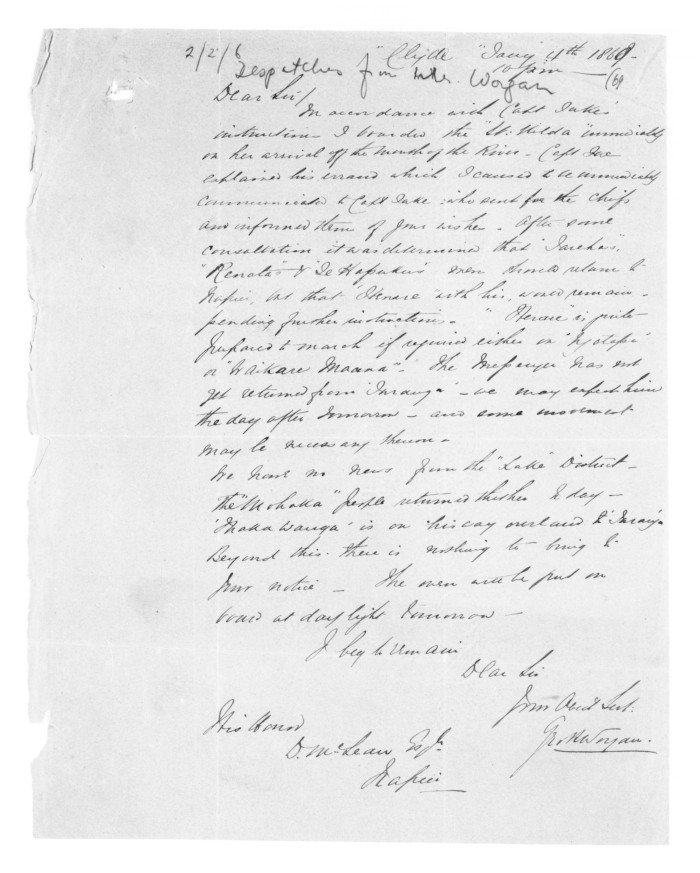 2/2/6
"Clyde" Jany 4th 1869
10 pm (69
Despatches from Mr. Worgan
Dear Sir/
In accordance with Capt Tuke's
instructions I boarded the "St. Kilda" immediately
on her arrival off the Mouth of the River. Capt Fox
explained his errand which I caused to be immediately
communicated to Capt Tuke: who sent for the chiefs
and informed them of your wishes. After some
consultation it was determined that "Tareha's",
"Renata's" & "Te Hapuku's" men should return to
Napier, but that "Ihaka" with his, would remain
pending further instructions. " is quite
prepared to march if required either on "Ngatapa"
or "Waikare Moana". The Messenger has not
yet returned from "Turanga" - we may expect him
the day after tomorrow - and some movement
may be necessary thereon -
We have no news from the "Lake" District -
the "Mohaka" people returned thither to day -
"Ihaka Wanga" is on his way overland to "Turanga"
Beyond this there is nothing to bring to
your notice - The men will be put on
board at daylight tomorrow -
I beg to remain
Dear Sir
Your Obedt Servt.
Geo. H. Worgan.
His Honor
D. McLean Esqr.
Napier